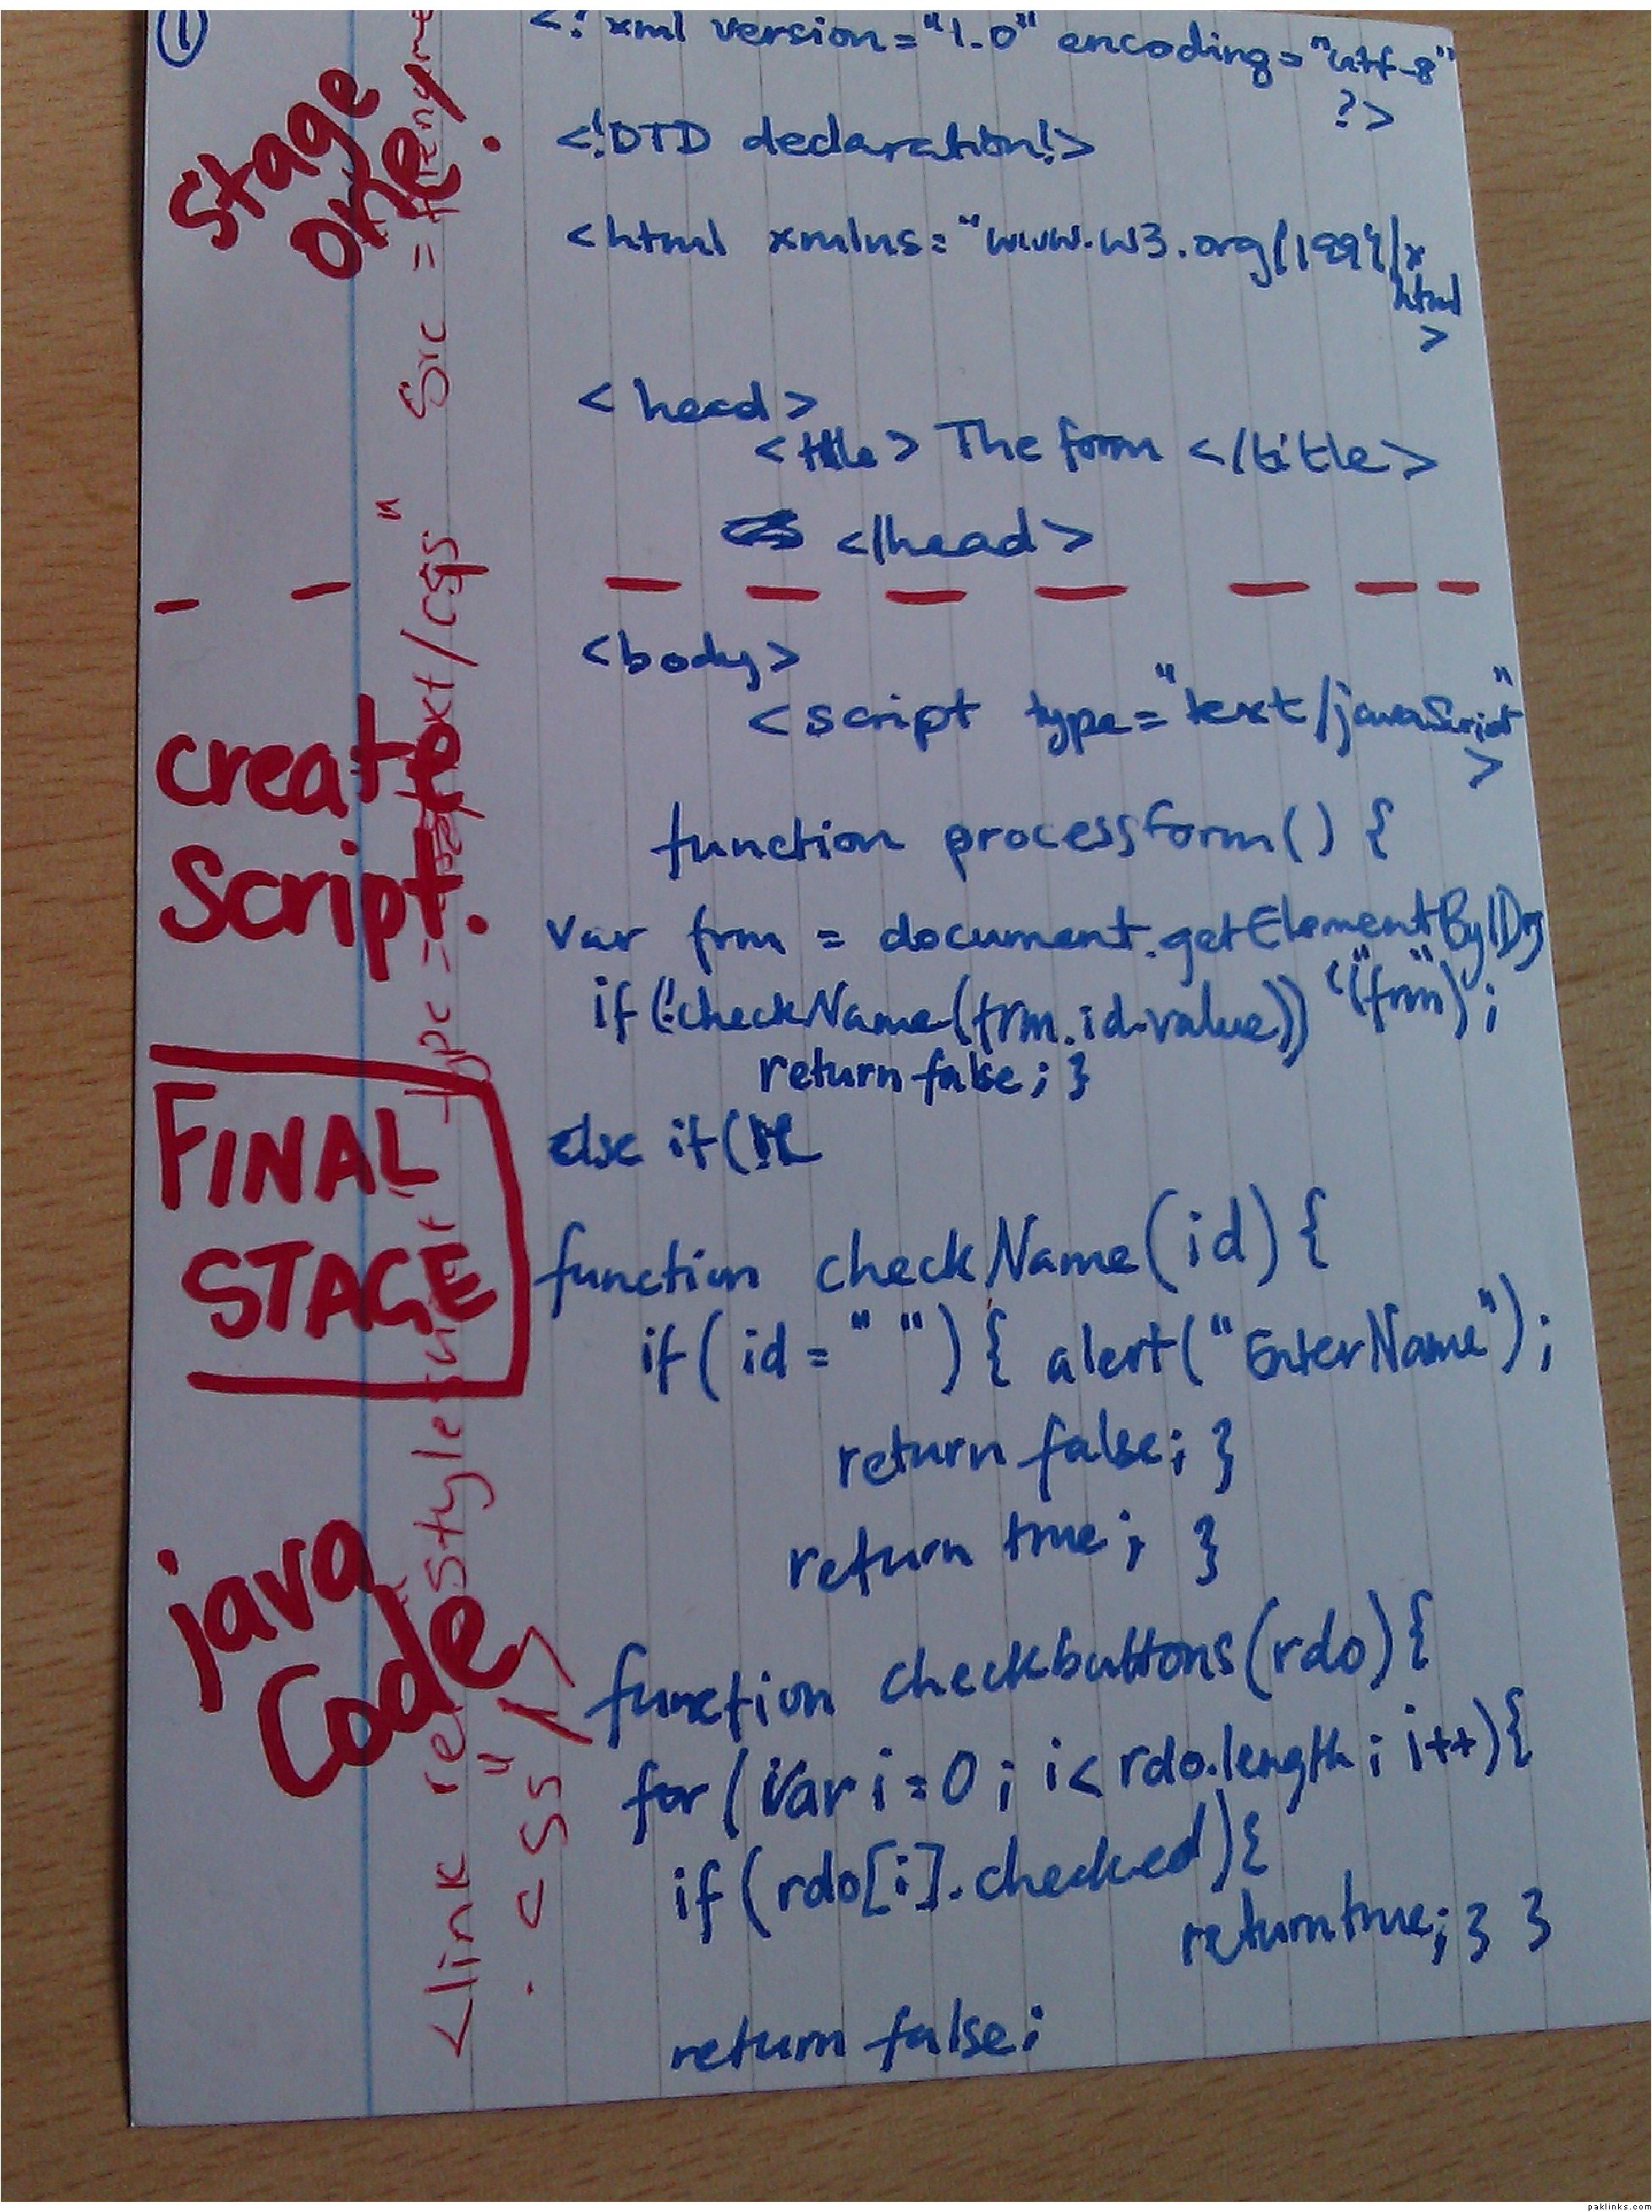 ①
<? xml version="1.0" encoding="utf-8"
?>
Stage
one.
<!DTD declaration!>
<html xmlns="www.w3.org/1999/x
html
>
<head>
<title> The form </title>
</head>
<body>
<script type="text/javaScript"
>
create
Script.
function processform() {
var frm = document.getElementByID
("frm");
if (!checkName(frm.id.value))
return false; }
FINAL
STAGE
else if(
function checkName(id) {
if( id = " ") { alert("EnterName");
return false; }
return true; }
java
Code
function checkbuttons(rdo) {
for (var i=0; i< rdo.length; i++){
if (rdo[i].checked){
return true; } }
return false;
<link rel = stylesheet type = "text/css" Src =
.css" />
paklinks.com